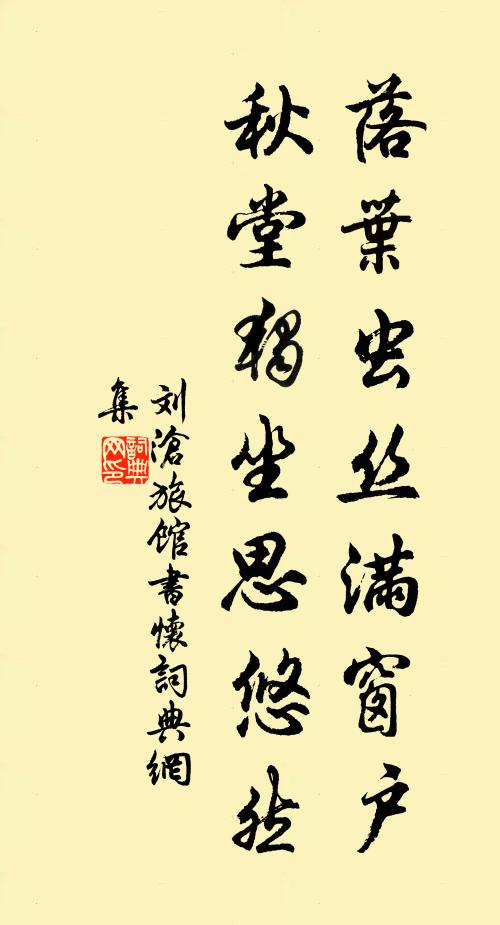 落葉虫丝满窗户
秋堂獨坐思悠然
刘滄旅馆書懷詞典網
集
詞典网印